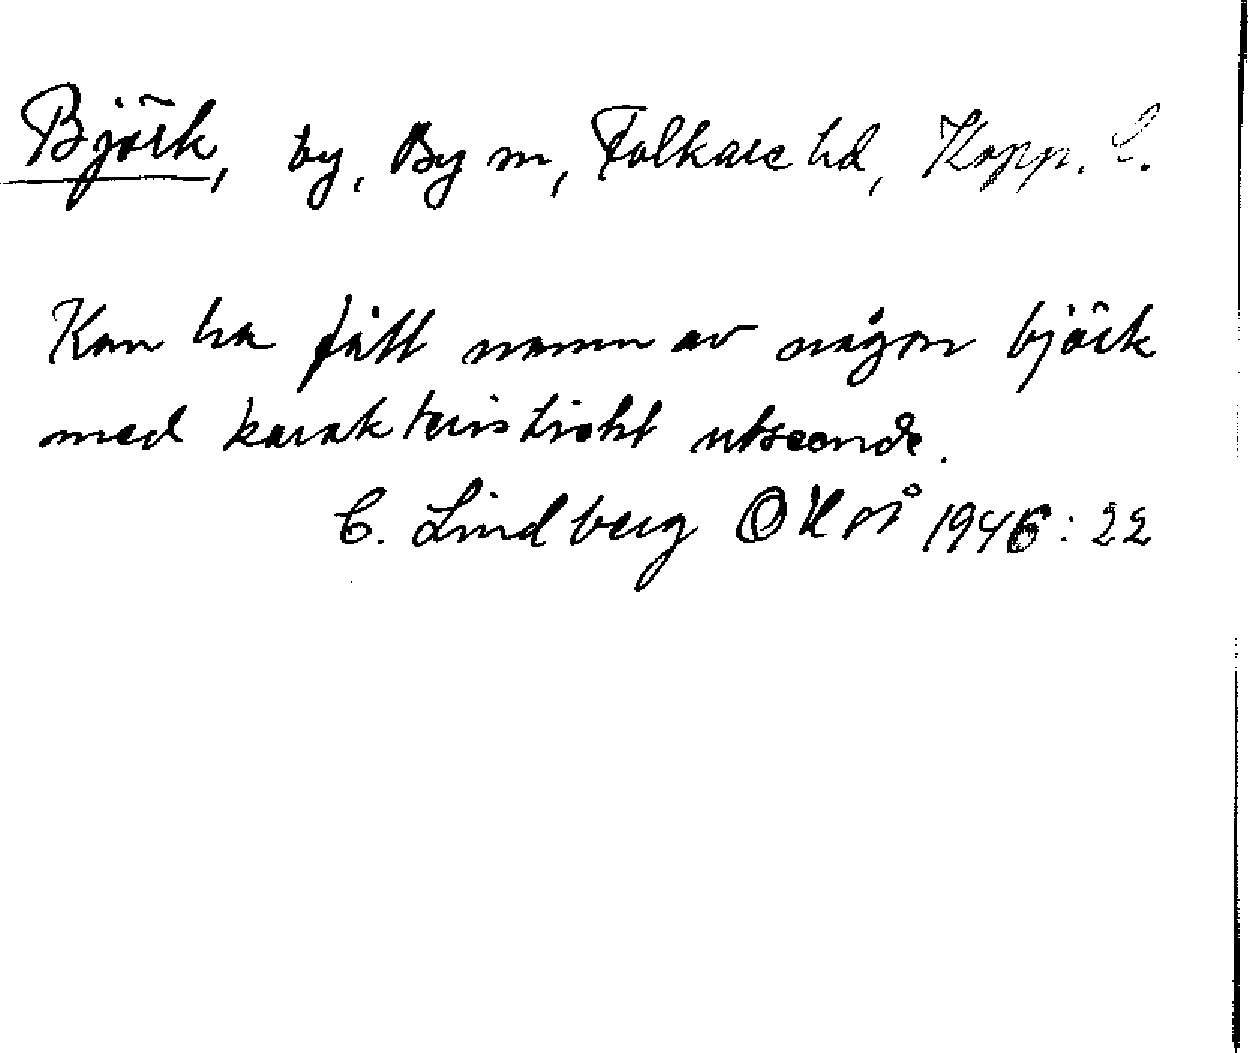 Björk, by, By sn, Folkare hd, Kopp. l.
Kan ha fått namn av någon björk
med karakteristiskt utseende.
C. Lindberg 1946:22